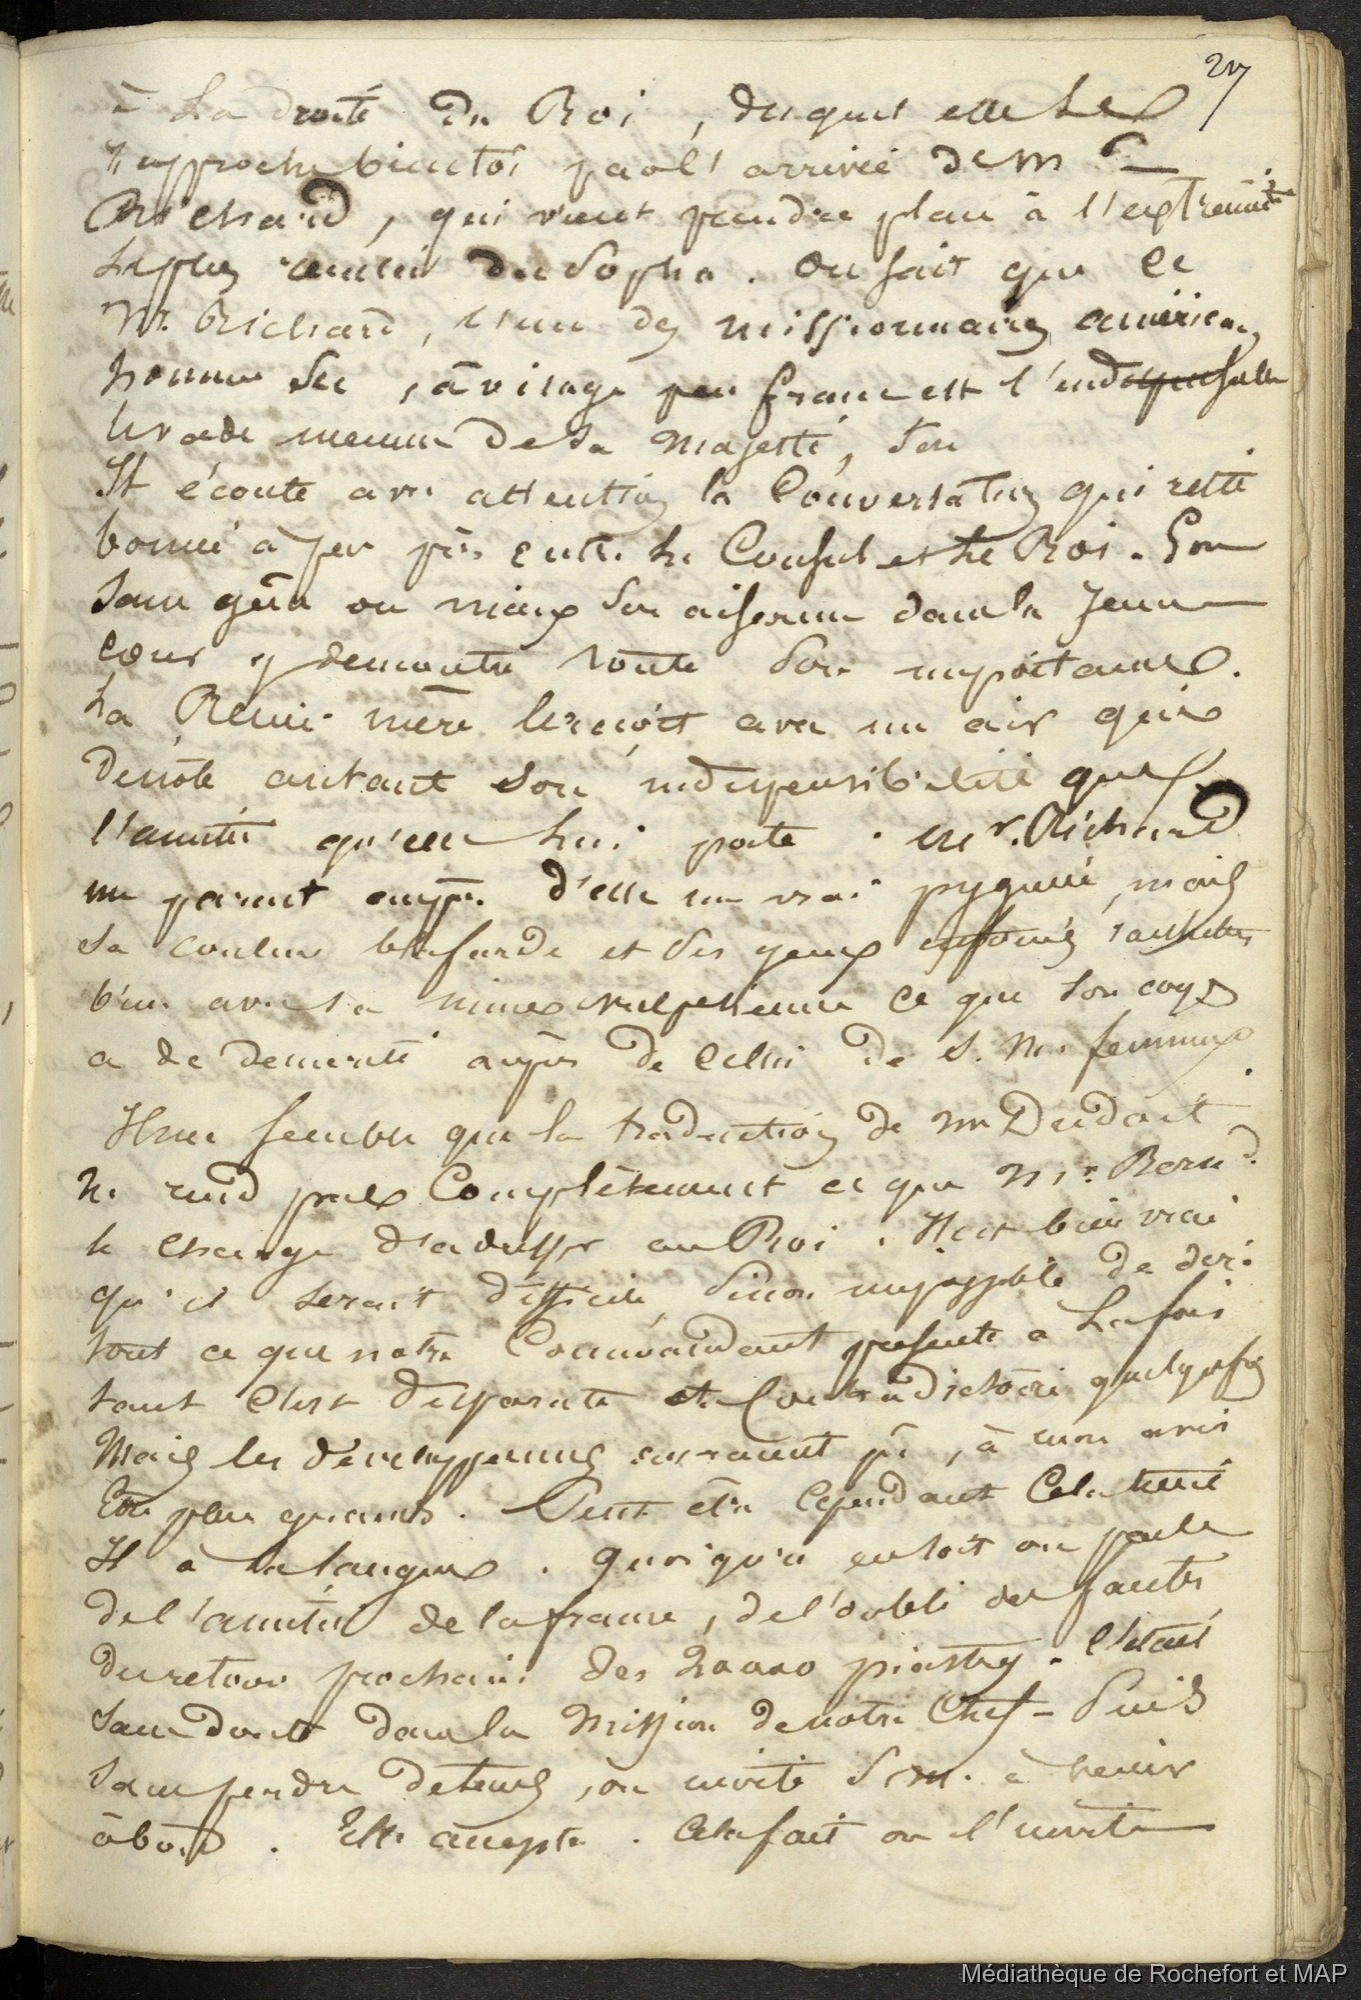 217
à La droite du Roi, duquel elle se
rapproche bientôt par l'arrivée de Mr
Richard, qui vient prendre place à l'extrémité
la plus du Sopha. On sait que ce
Mr. Richard, l'un des missionnaires américains
homme sec, à visage peu franc est l'indispensable
de sa Majesté, Son
Il écoute avec attention la Conversation qui reste
bornée à peu près entre le Consul et le Roi. Son
dans la Jeune
cour y démontre toute son importance.
La Reine mère le reçoit avec un air qui
dénote autant son indispensibilité que
l'amitié qu'elle lui porte. Mr. Richard
me parait auprès d'elle un vrai pygmée, mais
sa couleur blafarde et ses yeux enfoncés
bien avec sa mine vulpesienne ce que son corps
a de démérité auprès de celui de S. M. femme
Il me semble que la traduction de Mr Dudoit
ne rend pas Complètement ce que Mr. Bernd.
le charge d'adresser au Roi. Il est bien vrai
qu'il serait difficile, Sinon impossible de dire
tout ce que notre Commandant présente à la fois
tant c'est disparate et Contradictoire quelquefois
Mais les pr, à mon avis
Être plus grands. Peut être cependant Cela tient
Il à la langue. Quoiqu'il en soit on parle
de l'amitié de la france, de l'oubli des fautes
du retour prochain des 20000 piastres. C'était
sans doute dans la Mission de notre Chef - Puis
sans perdre de temps, on invite S. M. à venir
à bord. Elle accepte. Cela fait on l'invite
Médiathèque de Rochefort et MAP